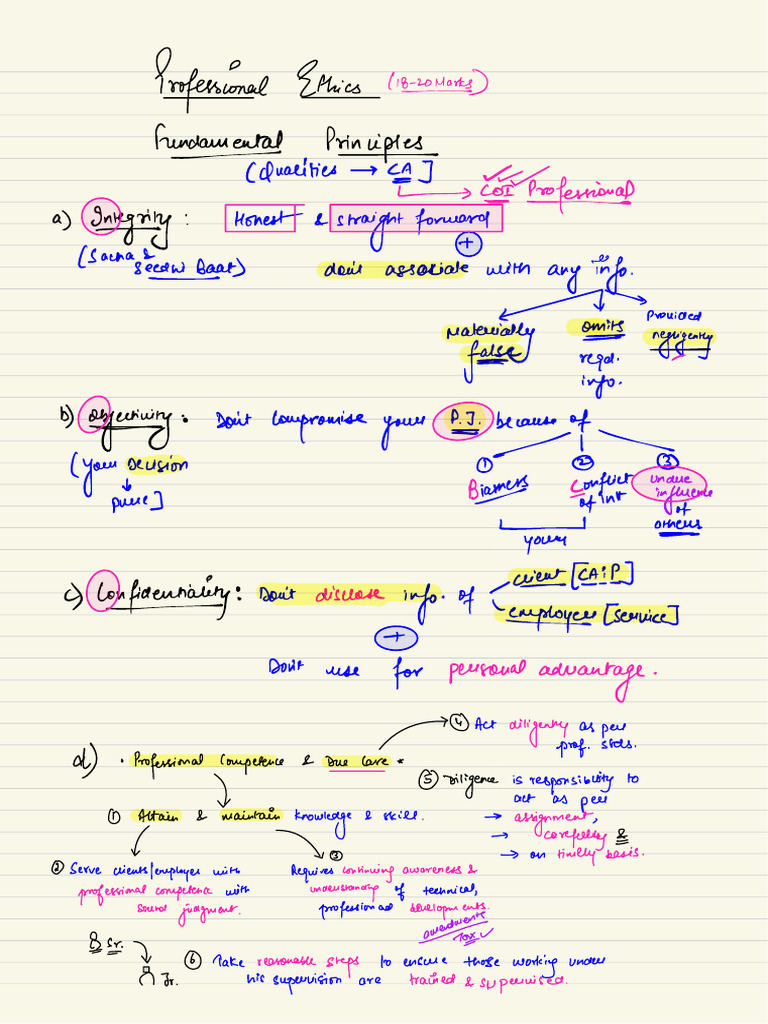 Professional Ethics (18-20 Marks)
Fundamental Principles
(Qualities → CA]
→ COI Professional
a) Integrity : Honest & straight forward
(Sacha & Seedhi Baat)
+
don't associate with any info.
Materially false
omits reqd. info.
Provided negligently
b) Objectivity : Don't compromise your P.J. because of
(your Decision ↓ pure]
① Biasness
② Conflict of int
③ undue influence of others
your
c) Confidentiality : Don't disclose info. of
client [CA:P]
employer [service]
+
Don't use for personal advantage.
d) • Professional Competence & Due Care *
④ Act diligently as per prof. stds.
⑤ Diligence is responsibility to
act as per
→ assignment,
→ carefully &
→ on timely basis.
① Attain & maintain knowledge & skill.
② Serve clients/employer with
professional competence with
sound judgment.
③ Requires continuing awareness &
understanding of technical,
professional developments.
amendments
Tax ✓
Sr.
Jr.
⑥ Take reasonable steps to ensure those working under
his supervision are trained & supervised.